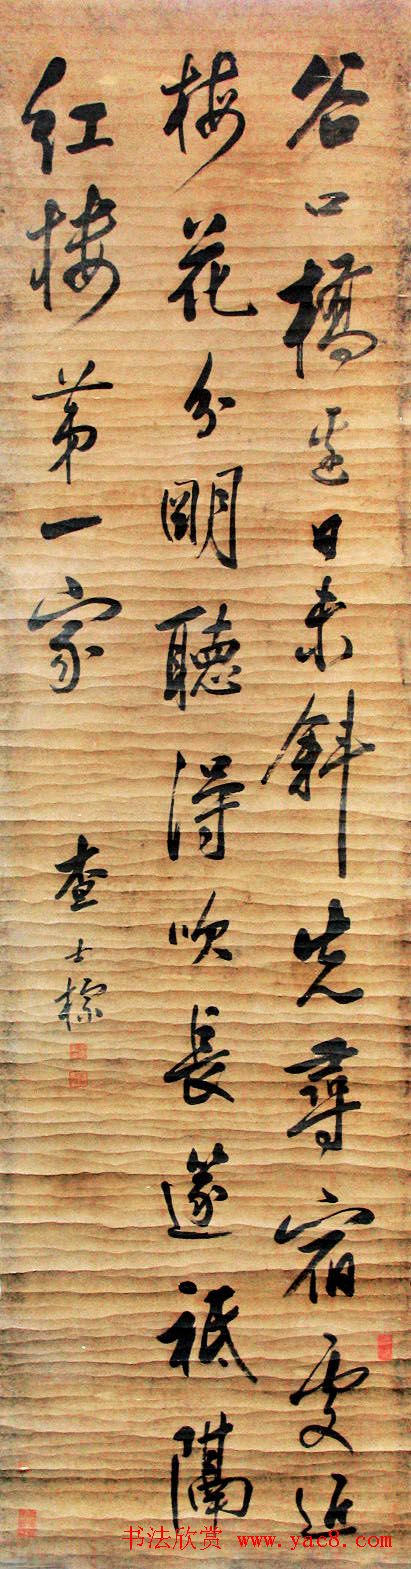 谷口橋邊日未斜先尋宿處近
梅花分明聽得吹長篴祗隔
紅樓第一家
查士標
书法欣赏 www.yac8.com